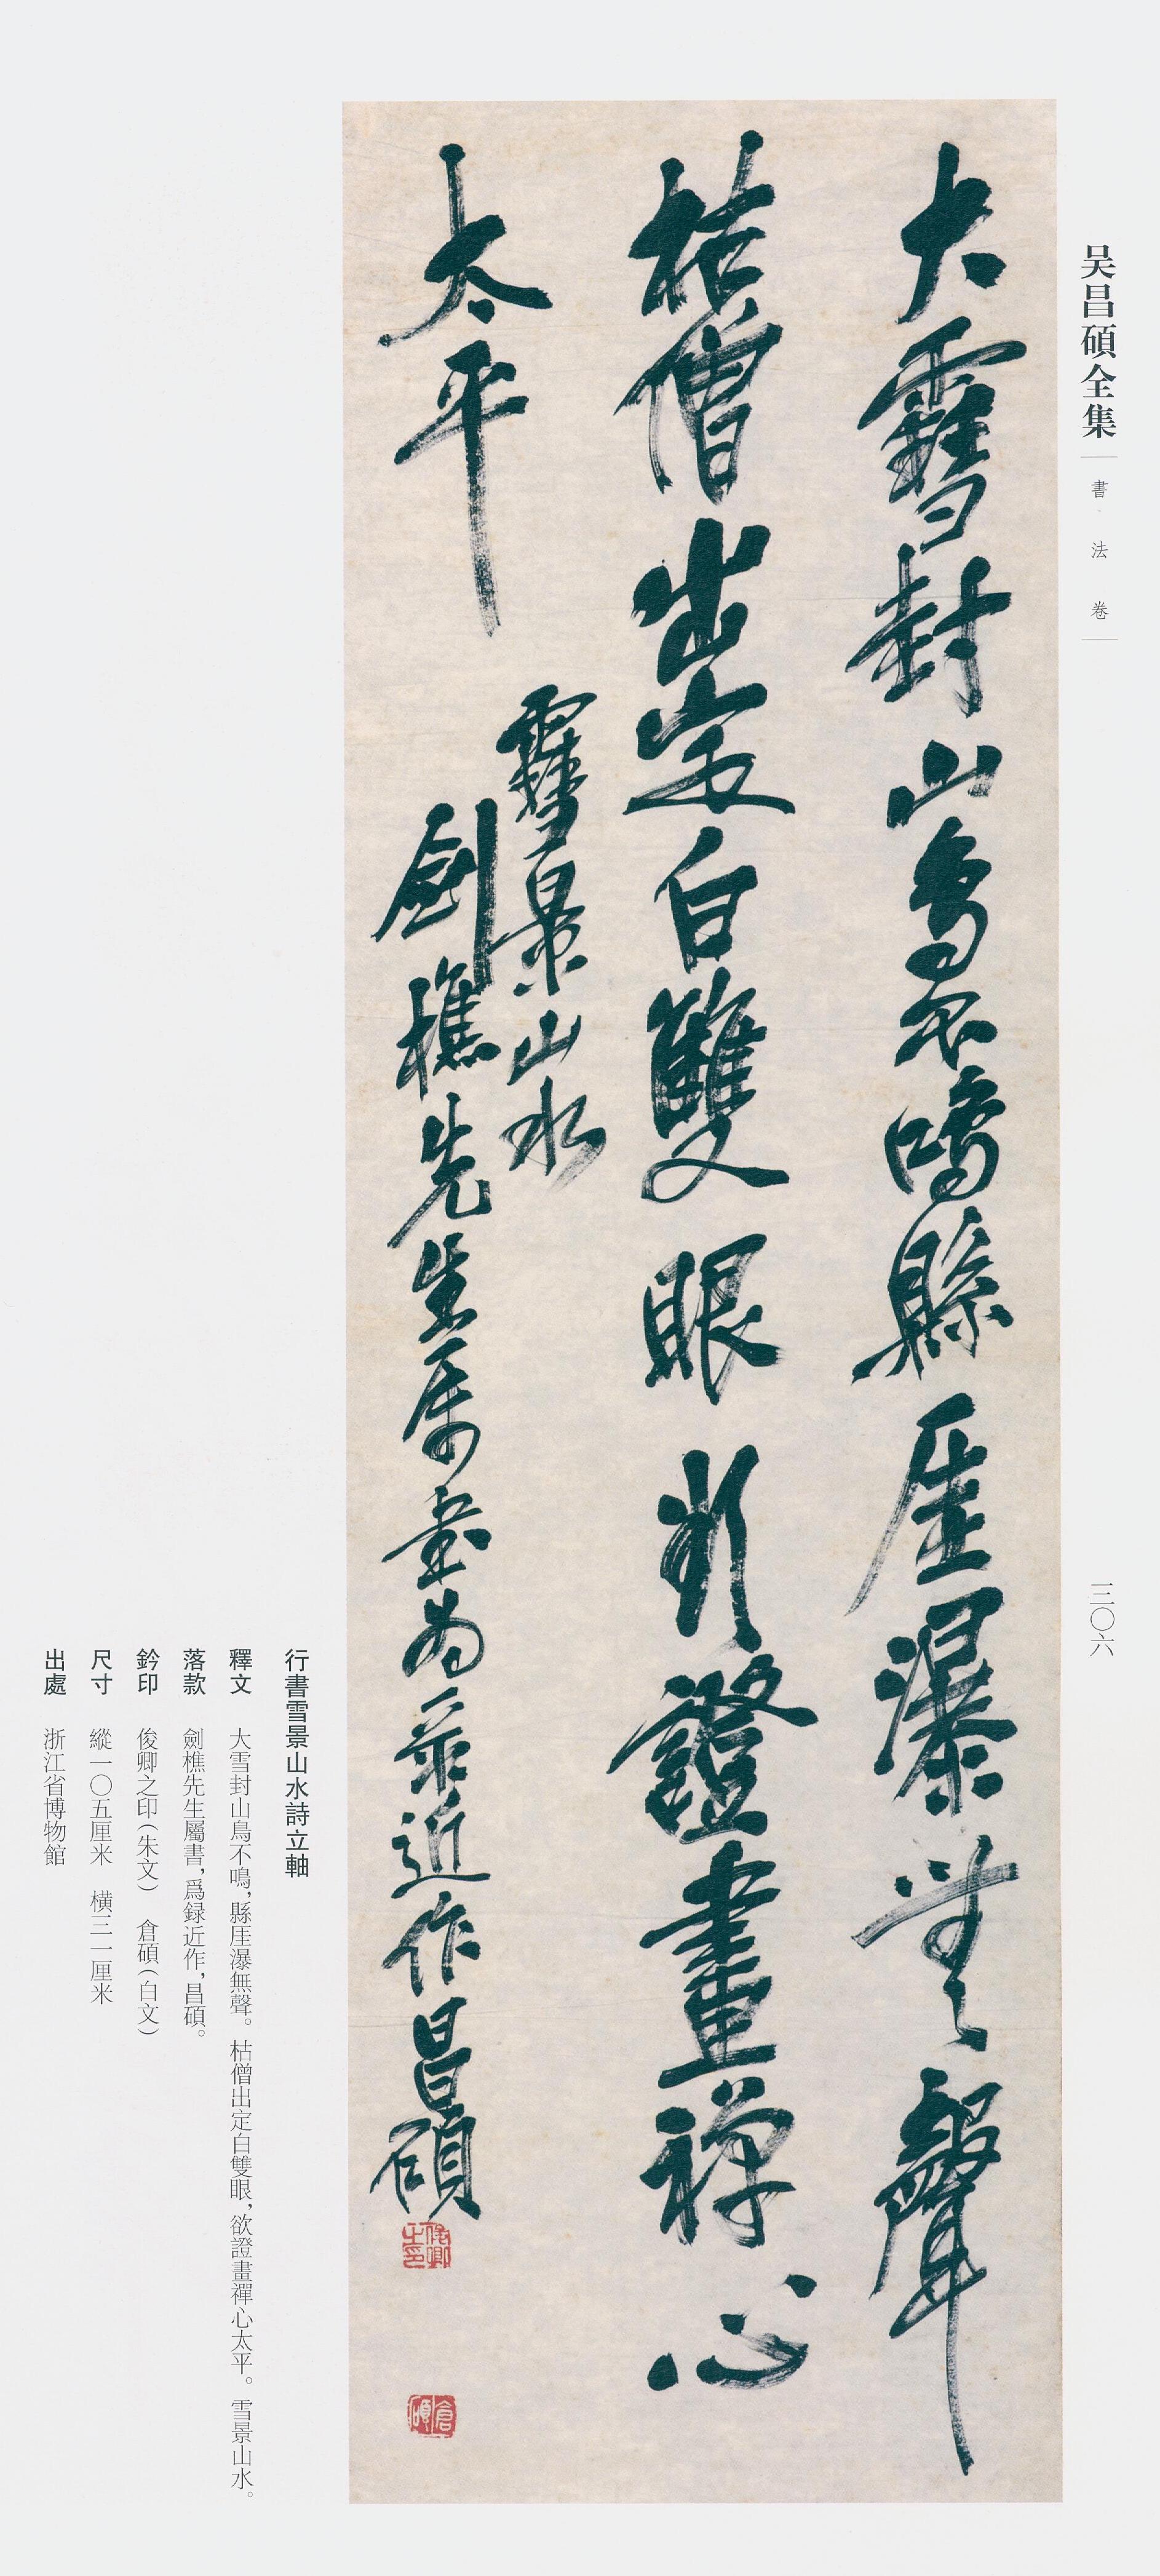 吴昌碩全集
書·法卷
三〇六
大雪封山鳥不鳴縣厓瀑無聲
枯僧出定白雙眼欲證畫禪心
太平
雪景山水
劍樵先生屬書為录近作昌碩
俊卿之印
倉碩
行書雪景山水詩立軸
釋文 大雪封山鳥不鳴，縣厓瀑無聲。枯僧出定白雙眼，欲證畫禪心太平。雪景山水。
落款 劍樵先生屬書，爲録近作，昌碩。
鈐印 俊卿之印（朱文） 倉碩（白文）
尺寸 縱一〇五厘米 橫三一厘米
出處 浙江省博物館